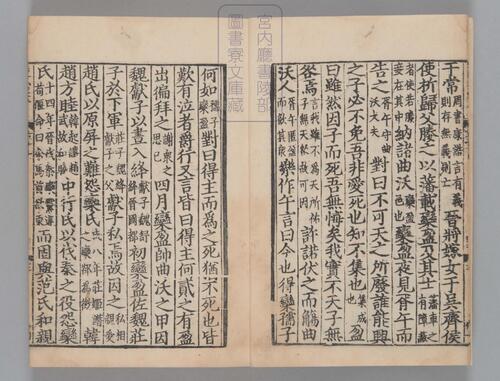 宮内廳書陵部
圖書寮文庫藏
于常周書康誥言有義則存無義則亡晉將嫁女于吳齊侯
使析歸父媵之以藩載欒盈及其士藩車之有障蔽
者使若媵妾在其中納諸曲沃欒盈邑也欒盈夜見胥午而
告之胥午守曲沃大夫對曰不可天之所廢誰能興
之子必不免吾非愛死也知不集也集成也盈
曰雖然因子而死吾無悔矣我實不天子無
咎焉言我雖不為天所祐子無天咎故可因許諾伏之而觴曲
沃人胥午匿盈而飲其眾樂作午言曰今也得欒孺子
何如孺子欒盈對曰得主而為之死猶不死也皆
歎有泣者爵行又言皆曰得主何貳之有盈
出徧拜之謝眾之思己四月欒盈帥曲沃之甲因
魏獻子以晝入絳獻子魏舒絳晉國都初欒盈佐魏莊
子於下軍莊子魏絳獻子之父獻子私焉故因之私相親愛
趙氏以原屏之難怨欒氏成八年莊姬譖之欒郤為徵韓
趙方睦韓起讓趙武故和睦中行氏以伐秦之役怨欒
氏十四年晉伐秦欒黶違荀偃命曰余馬首欲東而固與范氏和親